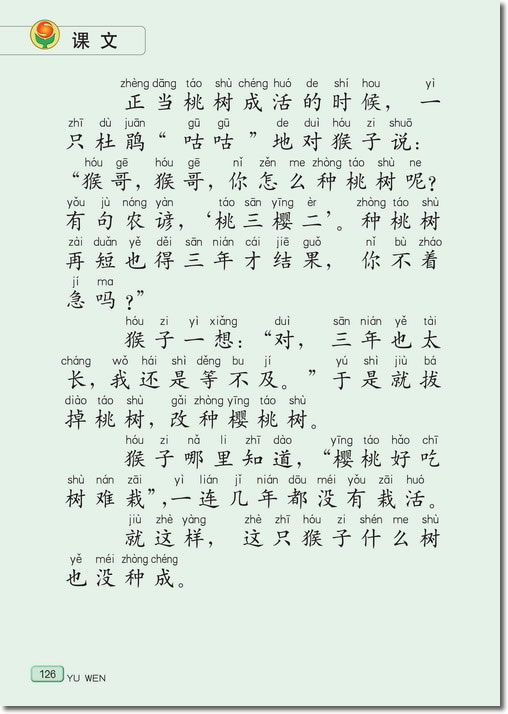 课文
zhèng dāng táo shù chéng huó de shí hou yì
正当桃树成活的时候，一
zhī dù juān gū gū de duì hóu zi shuō
只杜鹃“咕咕”地对猴子说：
hóu gē hóu gē nǐ zěn me zhòng táo shù ne
“猴哥，猴哥，你怎么种桃树呢？
yǒu jù nóng yàn táo sān yīng èr zhòng táo shù
有句农谚，‘桃三樱二’。种桃树
zài duǎn yě děi sān nián cái jiē guǒ nǐ bù zháo
再短也得三年才结果，你不着
jí ma
急吗？”
hóu zi yì xiǎng duì sān nián yě tài
猴子一想：“对，三年也太
cháng wǒ hái shì děng bu jí yú shì jiù bá
长，我还是等不及。”于是就拔
diào táo shù gǎi zhòng yīng táo shù
掉桃树，改种樱桃树。
hóu zi nǎ li zhī dào yīng táo hǎo chī
猴子哪里知道，“樱桃好吃
shù nán zāi yì lián jǐ nián dōu méi yǒu zāi huó
树难栽”，一连几年都没有栽活。
jiù zhè yàng zhè zhī hóu zi shén me shù
就这样，这只猴子什么树
yě méi zhòng chéng
也没种成。
126 YU WEN